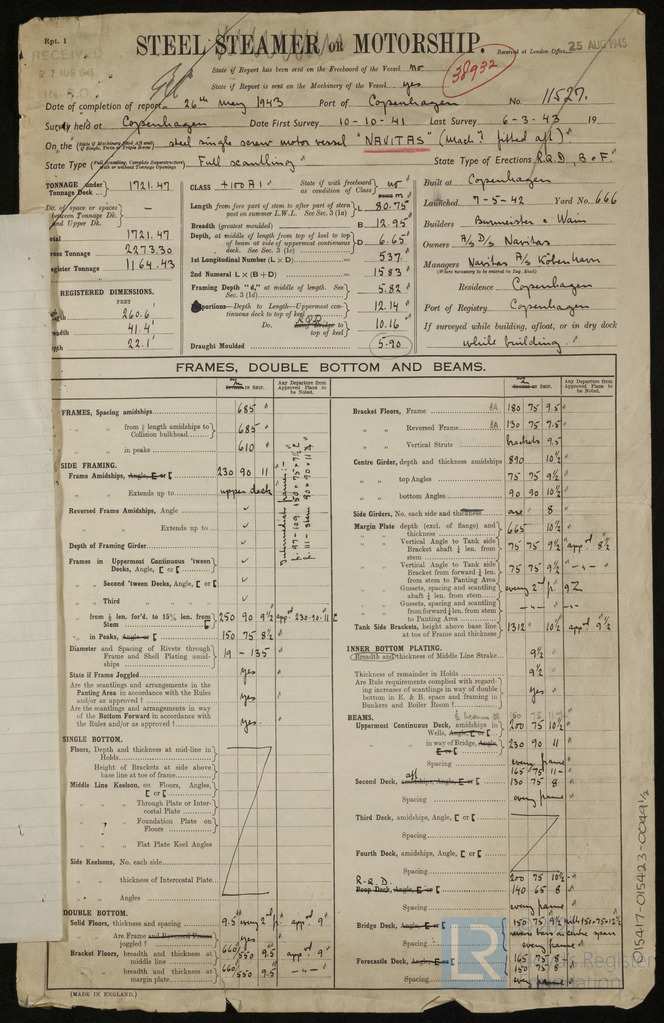 Rpt. 1
STEEL STEAMER OR MOTORSHIP.
Received at London Office 25 AUG 1945
RECEIVED
State if Report has been sent on the Freeboard of the Vessel no
38932
State if Report is sent on the Machinery of the Vessel yes
Date of completion of report 26th May 1943 Port of Copenhagen No. 11527.
Survey held at Copenhagen Date First Survey 10-10-41 Last Survey 6-3-43 19
On the steel single screw motor vessel "NAVITAS" (Mach.y fitted aft)
State Type Full scantling State Type of Erections R.Q.D, B & F.
TONNAGE under Tonnage Deck 1721.47
Do. of space or spaces between Tonnage Dk. and Upper Dk. —
Total 1721.47
Gross Tonnage 2273.30
Register Tonnage 1164.43
REGISTERED DIMENSIONS.
FEET
260.6
41.4'
22.1'
CLASS +100A1 State if with freeboard as condition of Class no
Length from fore part of stem to after part of stern post on summer L.W.L. See Sec. 3 (1a) L 80.75
Breadth (greatest moulded) B 12.95
Depth, at middle of length from top of keel to top of beam at side of uppermost continuous deck. See Sec. 3 (1c) D 6.65
1st Longitudinal Number (L × D) 537.
2nd Numeral L × (B + D) 1583
Framing Depth "d," at middle of length. See Sec. 3 (1d) 5.82
Proportions—Depth to Length—Uppermost continuous deck to top of keel 12.14
Do. R.Q.D. Long Bridge to top of keel 10.16
Draught Moulded 5.90
Built at Copenhagen
Launched 7-5-42 Yard No. 666
Builders Burmeister & Wain
Owners A/S D/S Navitas
Managers Navitas A/S København
(Where necessary to be entered in Reg. Book)
Residence Copenhagen
Port of Registry Copenhagen
If surveyed while building, afloat, or in dry dock
while building.
FRAMES, DOUBLE BOTTOM AND BEAMS.
IN SHIP.
Any Departure from Approved Plans to be Noted.
FRAMES, Spacing amidships 685
" " from ½ length amidships to Collision bulkhead 685
" " in peaks 610
SIDE FRAMING.
Frame Amidships, Angle, E or [ 230 90 11
" " Extends up to upper deck
Reversed Frame Amidships, Angle ✓
" " Extends up to ✓
Depth of Framing Girder ✓
Frames in Uppermost Continuous 'tween Decks, Angle, [ or [ ✓
" " Second 'tween Decks, Angle, [ or [ ✓
" " Third ✓
" " from ½ len. for'd. to 15% len. from Stem 250 90 9½ app. 230.90.11
" " in Peaks, Angle or [ 150 75 8½
Diameter and Spacing of Rivets through Frame and Shell Plating amidships 19 - 135
State if Frame Joggled yes
Are the scantlings and arrangements in the Panting Area in accordance with the Rules and/or as approved? yes
Are the scantlings and arrangements in way of the Bottom Forward in accordance with the Rules and/or as approved? yes.
SINGLE BOTTOM.
Floors, Depth and thickness at mid-line in Holds
Height of Brackets at side above base line at toe of frame
Middle Line Keelson, on Floors, Angles, [ or [
" " " Through Plate or Intercostal Plate
" " " Foundation Plate on Floors
" " " Flat Plate Keel Angles
Side Keelsons, No. each side
" " thickness of Intercostal Plate
" " Angles
DOUBLE BOTTOM.
Solid Floors, thickness and spacing 9.5 every 2nd f. app. 9
" " Are Frame and Reversed Frame joggled? yes
Bracket Floors, breadth and thickness at middle line 660/550 9.5 app. 9
" " breadth and thickness at margin plate 660/550 9.5 -"-
(MADE IN ENGLAND.)
Bracket Floors, Frame BA 180 75 9.5
" " Reversed Frame BA 130 75 7.5
" " Vertical Struts brackets 9.5
Centre Girder, depth and thickness amidships 890 10½
" " top Angles 75 75 9½
" " bottom Angles 90 90 10½
Side Girders, No. each side and thickness one 8
Margin Plate depth (excl. of flange) and thickness 665 10½
" " Vertical Angle to Tank side Bracket abaft ¼ len. from stem 75 75 9½ app'd 8½
" " Vertical Angle to Tank side Bracket from forward ¼ len. from stem to Panting Area 75 75 9½ -"-
" " Gussets, spacing and scantling abaft ¼ len. from stem every 2nd f.
" " Gussets, spacing and scantling from forward ¼ len. from stem to Panting Area -"-
Tank Side Brackets, height above base line at toe of Frame and thickness 1312 10½ app'd 9½
INNER BOTTOM PLATING.
Breadth and thickness of Middle Line Strake 9½
Thickness of remainder in Holds 9½
Are Rule requirements complied with regarding increases of scantlings in way of double bottom in E. & B. space and framing in Bunkers and Boiler Room? yes
BEAMS.
Uppermost Continuous Deck, amidships in Wells, Angle, E or [ 200 75 10½
" " in way of Bridge, Angle, E or [ 230 90 11
Spacing every frame
Second Deck, aft amidships, Angle, E or [ 165 75 11
130 75 8
Spacing every frame
Third Deck, amidships, Angle, [ or [
Spacing
Fourth Deck, amidships, Angle, [ or [
Spacing
R.Q.D.
Poop Deck, Angle, E or [ 200 75 10½
140 65 8
Spacing every frame
Bridge Deck, Angle, E or [ 150 75 9½ with 150×75×12½
Spacing every frame
Forecastle Deck, Angle, E or [ 165 75 8
150 75 8
Spacing every frame
LR
Lloyd's Register Foundation
015417-015423-0049½